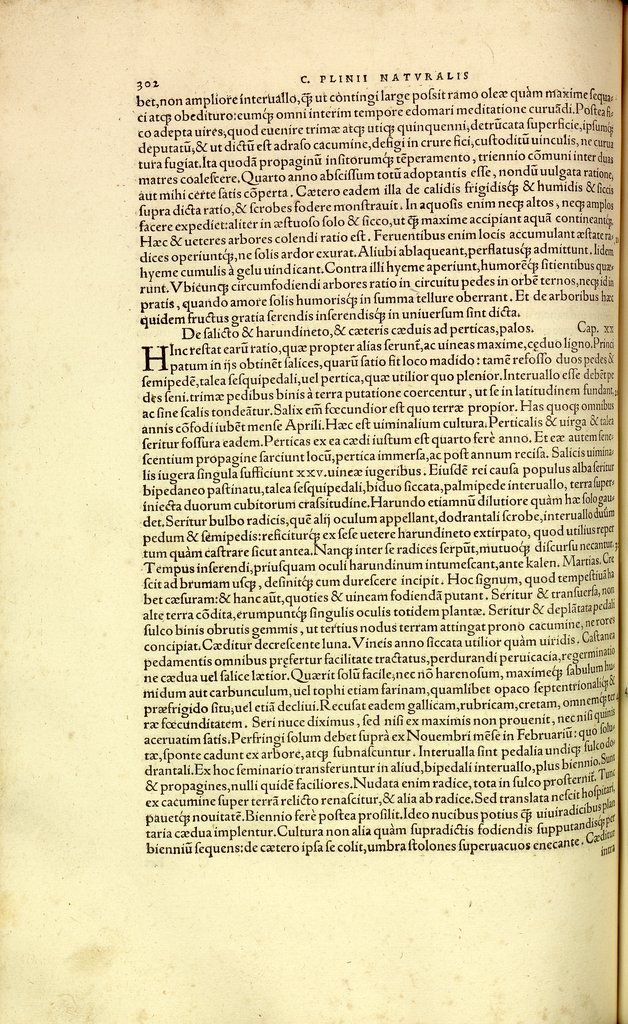 302
C. PLINII NATVRALIS
bet, non ampliore interuallo, q̃ꝫ ut cõtingi large possit ramo oleæ quàm maxime sequa-
ci atq; obedituro: eumq́; omni interim tempore edomari meditatione curuãdi. Postea si-
co adepta uires, quod euenire trimæ atq; utiq; quinquenni, detrũcata superficie, ipsumq́;
deputatũ, & ut dictũ est adraso cacumine, defigi in crure fici, custoditũ uinculis, ne curua
tura fugiat. Ita quodã propaginũ insitorumq́; tẽperamento, triennio cõmuni inter duas
matres coalescere. Quarto anno abscissum totũ adoptantis esse, nondũ uulgata ratione,
aut mihi certe satis cõperta. Cætero eadem illa de calidis frigidisq́; & humidis & siccis
supra dicta ratio, & scrobes fodere monstrauit. In aquosis enim neq; altos, neq; amplos
facere expediet: aliter in æstuoso solo & sicco, ut q̃ꝫ maxime accipiant aquã contineantq́;
Hæc & ueteres arbores colendi ratio est. Feruentibus enim locis accumulant æstate ra-
dices operiuntq́;, ne solis ardor exurat. Aliubi ablaqueant, perflatusq́; admittunt. Iidem
hyeme cumulis à gelu uindicant. Contra illi hyeme aperiunt, humorẽq́; sitientibus quæ-
runt. Vbicunq; circumfodiendi arbores ratio in circuitu pedes in orbẽ ternos, neq; id in
pratis, quando amore solis humorisq́; in summa tellure oberrant. Et de arboribus hæc
quidem fructus gratia serendis inserendisq́; in uniuersum sint dicta.
De salicto & harundineto, & cæteris cæduis ad perticas, palos. Cap. XX
HIncrestat earũ ratio, quæ propter alias serunt̃, ac uineas maxime, cęduo ligno. Princi
patum in ijs obtinẽt salices, quarũ satio fit loco madido: tamẽ refosso duos pedes &
semipedẽ, talea sesquipedali, uel pertica, quæ utilior quo plenior. Interuallo esse debẽt pe
des seni. trimæ pedibus binis à terra putatione coercentur, ut se in latitudinem fundant,
ac sine scalis tondeãtur. Salix em̃ fœcundior est quo terræ propior. Has quoq; omnibus
annis cõfodi iubẽt mense Aprili. Hæc est uiminalium cultura. Perticalis & uirga & talea
seritur fossura eadem. Perticas ex ea cædi iustum est quarto ferè anno. Et eæ autem sene-
scentium propagine sarciunt locũ, pertica immersa, ac post annum recisa. Salicis uimina-
lis iugera singula sufficiunt XXV. uineæ iugeribus. Eiusdẽ rei causa populus alba seritur
bipedaneo pastinatu, talea sesquipedali, biduo siccata, palmipede interuallo, terra super-
iniecta duorum cubitorum crassitudine. Harundo etiamnũ dilutiore quàm hæ solo gau-
det. Seritur bulbo radicis, quẽ alij oculum appellant, dodrantali scrobe, interuallo duũm
pedum & semipedis: reficiturq́; ex sese uetere harundineto extirpato, quod utilius reper
tum quàm castrare sicut antea. Nanq; inter se radices serpũt, mutuoq́; discursu necantur.
Tempus inserendi, priusquam oculi harundinum intumescant, ante kalen. Martias. Cre
scit ad brumam usq;, desinitq́; cum durescere incipit. Hoc signum, quod tempestiuã ha
bet cæsuram: & hanc aũt, quoties & uineam fodiendã putant. Seritur & transuersa, non
alte terra cõdita, erumpuntq́; singulis oculis totidem plantæ. Seritur & deplãtata pedali
sulco binis obrutis gemmis, ut tertius nodus terram attingat prono cacumine, ne rores
concipiat. Cæditur decrescente luna. Vineis anno siccata utilior quàm uiridis. Castanea
pedamentis omnibus prefertur facilitate tractatus, perdurandi peruicacia, regerminatio
ne cædua uel salice lætior. Quærit solũ facile, nec nõ harenosum, maximeq́; sabulum hu-
midum aut carbunculum, uel tophi etiam farinam, quamlibet opaco septentrionaliq́; &
præfrigido situ, uel etiã decliui. Recusat eadem gallicam, rubricam, cretam, omnemq́; ter
ræ fœcunditatem. Seri nuce diximus, sed nisi ex maximis non prouenit, nec nisi quinis
aceruatim satis. Perfringi solum debet suprà ex Nouembri mẽse in Februariũ: quo solu-
tæ, sponte cadunt ex arbore, atq; subnascuntur. Interualla sint pedalia undiq; sulco do-
drantali. Ex hoc seminario transferuntur in aliud, bipedali interuallo, plus biennio. Sunt
& propagines, nulli quidẽ faciliores. Nudata enim radice, tota in sulco prosternit̃. Tunc
ex cacumine super terrã relicto renascitur, & alia ab radice. Sed translata nescit hospitari,
pauetq́; nouitatẽ. Biennio ferè postea prosilit. Ideo nucibus potius q̃ꝫ uiuiradicibus plan
taria cædua implentur. Cultura non alia quàm supradictis fodiendis supputandisq́; per
bienniũ sequens: de cætero ipsa se colit, umbra stolones superuacuos enecante. Cæditur
intra